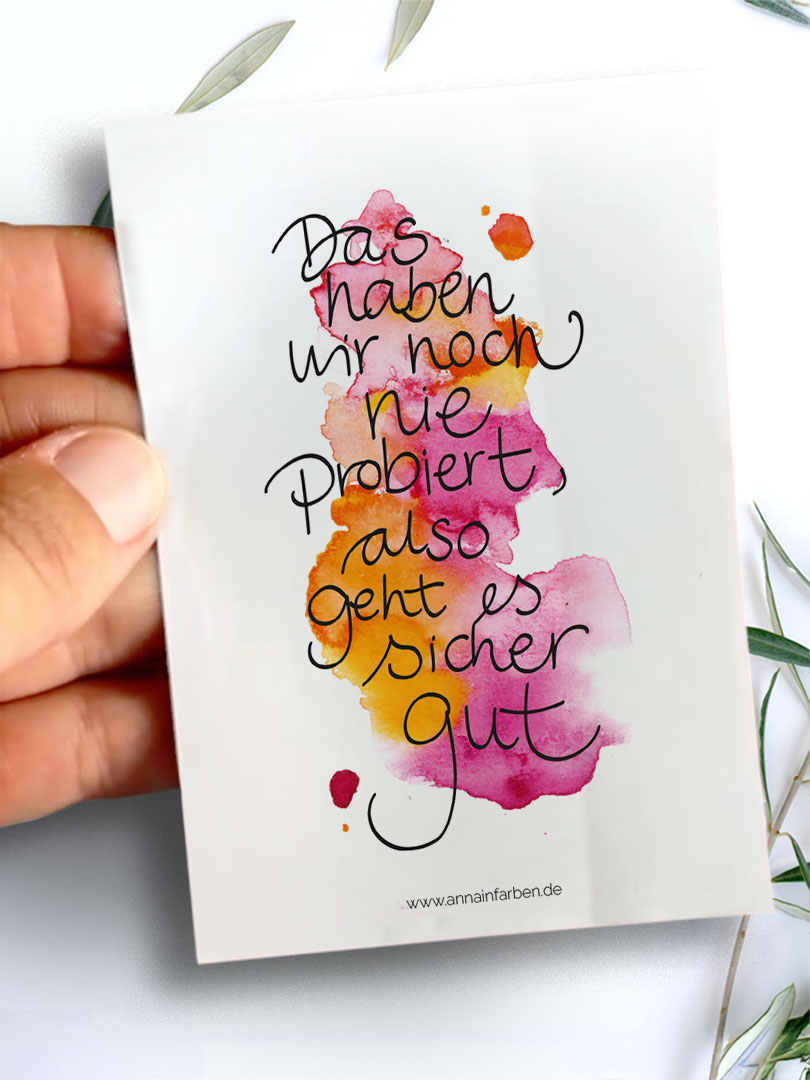 Das
haben
wir noch
nie
Probiert,
also
geht es
sicher
gut
www.annainfarben.de